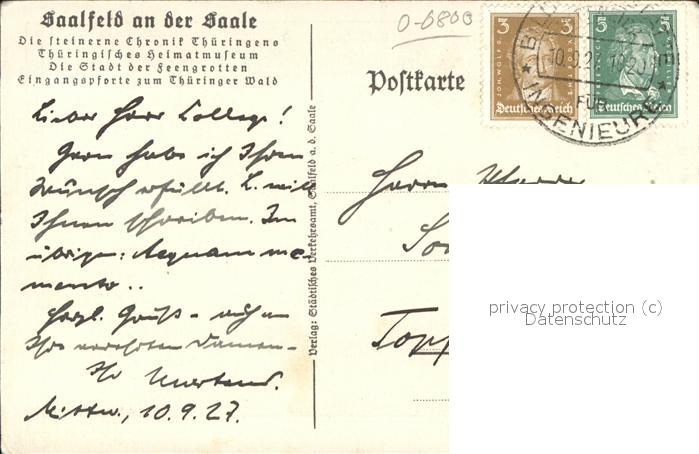 Saalfeld an der Saale
Die steinerne Chronik Thüringens
Thüringisches Heimatmuseum
Die Stadt der Feengrotten
Eingangspforte zum Thüringer Wald
0-6800
Postkarte
3 3
JOH. WOLFG.
Deutsches Reich Deutsches Reich
10.9.27
FÜR
INGENIEURE
Lieber Herr College!
Gern habe ich Ihren
Wunsch erfüllt. L. will
Ihnen schreiben. Im
übrigen: Aequam me-
mento..
Herzl. Gruß - auch an
Ihre verehrten Damen -
Ihr
Mittw., 10.9.27.
Verlag: Städtisches Verkehrsamt, Saalfeld a. d. Saale
Herrn
privacy protection (c)
Datenschutz